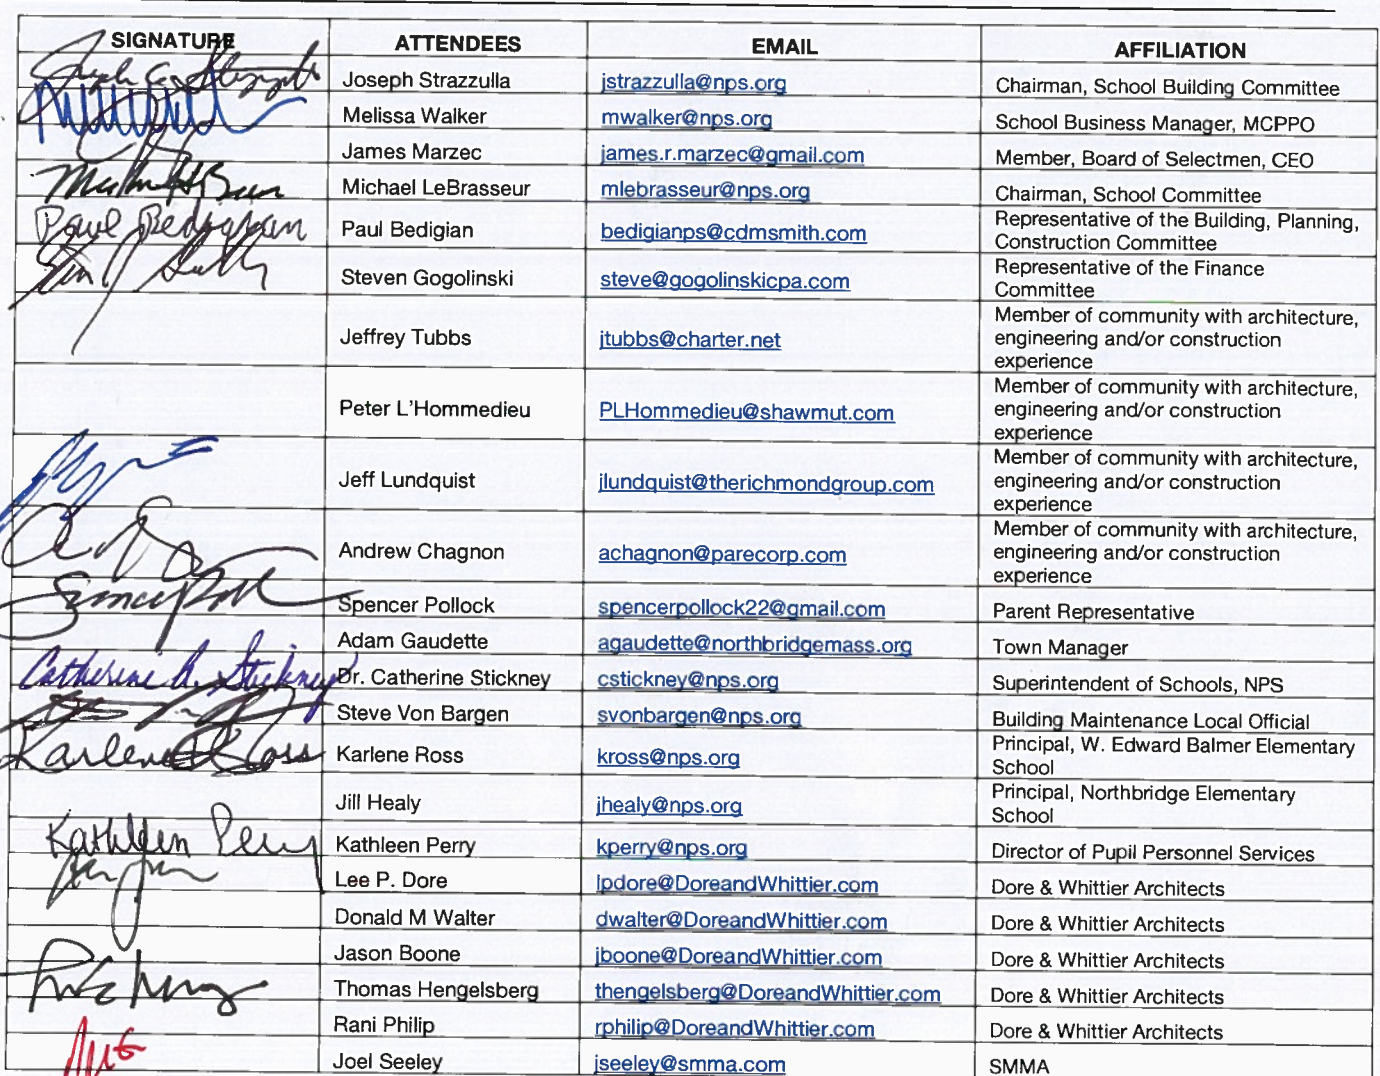 SIGNATURE ATTENDEES EMAIL AFFILIATION
Joseph Strazzulla jstrazzulla@nps.org Chairman, School Building Committee
Melissa Walker mwalker@nps.org School Business Manager, MCPPO
James Marzec james.r.marzec@gmail.com Member, Board of Selectmen, CEO
Michael LeBrasseur mlebrasseur@nps.org Chairman, School Committee
Paul Bedigian Paul Bedigian bedigianps@cdmsmith.com Representative of the Building, Planning,
Construction Committee
Steven Gogolinski steve@gogolinskicpa.com Representative of the Finance
Committee
Jeffrey Tubbs jtubbs@charter.net Member of community with architecture,
engineering and/or construction
experience
Peter L'Hommedieu PLHommedieu@shawmut.com Member of community with architecture,
engineering and/or construction
experience
Jeff Lundquist jlundquist@therichmondgroup.com Member of community with architecture,
engineering and/or construction
experience
Andrew Chagnon achagnon@parecorp.com Member of community with architecture,
engineering and/or construction
experience
Spencer Pollock spencerpollock22@gmail.com Parent Representative
Adam Gaudette agaudette@northbridgemass.org Town Manager
Catherine A. Stickney Dr. Catherine Stickney cstickney@nps.org Superintendent of Schools, NPS
Steve Von Bargen svonbargen@nps.org Building Maintenance Local Official
Karlene Ross Karlene Ross kross@nps.org Principal, W. Edward Balmer Elementary
School
Jill Healy jhealy@nps.org Principal, Northbridge Elementary
School
Kathleen Perry Kathleen Perry kperry@nps.org Director of Pupil Personnel Services
Lee P. Dore lpdore@DoreandWhittier.com Dore & Whittier Architects
Donald M Walter dwalter@DoreandWhittier.com Dore & Whittier Architects
Jason Boone jboone@DoreandWhittier.com Dore & Whittier Architects
Thomas Hengelsberg thengelsberg@DoreandWhittier.com Dore & Whittier Architects
Rani Philip rphilip@DoreandWhittier.com Dore & Whittier Architects
Joel Seeley jseeley@smma.com SMMA